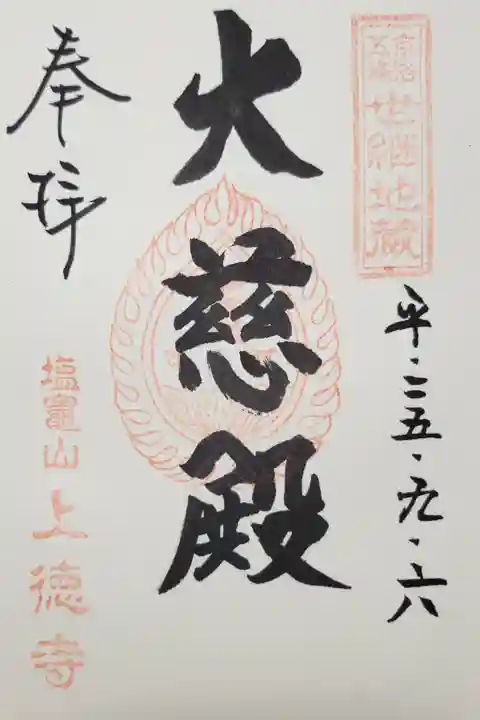 世継地蔵
平・二五・九・六
大慈殿
奉拝
塩竈山上徳寺